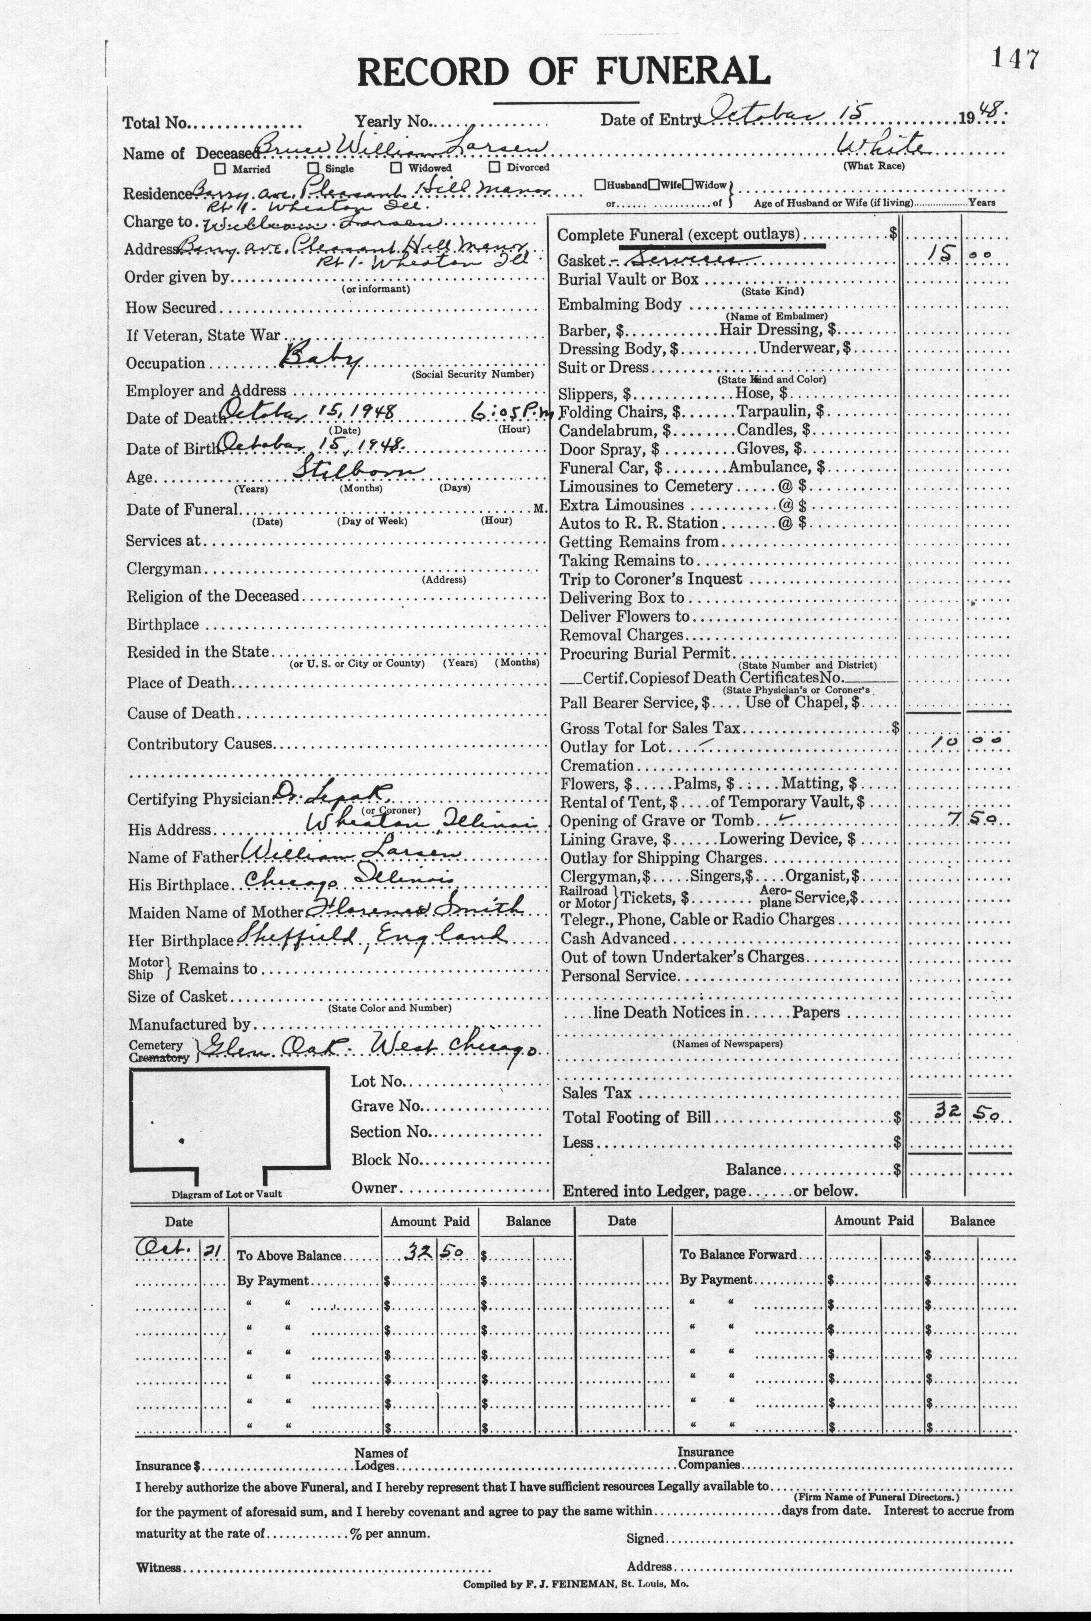 147
RECORD OF FUNERAL
Total No. Yearly No. Date of Entry October 15 1948.
Name of Deceased Bruce William Larsen White
☐ Married ☐ Single ☐ Widowed ☐ Divorced (What Race)
Residence Barry ave. Pleasant Hill Manor ☐Husband☐Wife☐Widow}
Rt 1. Wheaton Ill. or of Age of Husband or Wife (if living) Years
Charge to William Larsen
Address Barry ave. Pleasant Hill Manor
Rt 1. Wheaton Ill
Order given by
(or informant)
How Secured
If Veteran, State War
Occupation Baby
(Social Security Number)
Employer and Address
Date of Death October 15, 1948 6:05 P.m
(Date) (Hour)
Date of Birth October 15, 1948.
Age Stilborn
(Years) (Months) (Days)
Date of Funeral M.
(Date) (Day of Week) (Hour)
Services at
Clergyman
(Address)
Religion of the Deceased
Birthplace
Resided in the State
(or U. S. or City or County) (Years) (Months)
Place of Death
Cause of Death
Contributory Causes
Certifying Physician Dr.
(or Coroner)
His Address Wheaton, Illinois
Name of Father William Larsen
His Birthplace Chicago Illinois
Maiden Name of Mother Florence Smith
Her Birthplace Sheffield, England
Motor
Ship } Remains to
Size of Casket
(State Color and Number)
Manufactured by
Cemetery
Crematory } Glen Oak. West Chicago
Lot No.
Grave No.
Section No.
Block No.
Owner
Diagram of Lot or Vault
Complete Funeral (except outlays) $
Casket - Services 15 00
Burial Vault or Box
(State Kind)
Embalming Body
(Name of Embalmer)
Barber, $ Hair Dressing, $
Dressing Body, $ Underwear, $
Suit or Dress
(State Kind and Color)
Slippers, $ Hose, $
Folding Chairs, $ Tarpaulin, $
Candelabrum, $ Candles, $
Door Spray, $ Gloves, $
Funeral Car, $ Ambulance, $
Limousines to Cemetery @ $
Extra Limousines @ $
Autos to R. R. Station @ $
Getting Remains from
Taking Remains to
Trip to Coroner's Inquest
Delivering Box to
Deliver Flowers to
Removal Charges
Procuring Burial Permit
(State Number and District)
Certif. Copies of Death Certificates No.
(State Physician's or Coroner's
Pall Bearer Service, $ Use of Chapel, $
Gross Total for Sales Tax $
Outlay for Lot ✓ 10 00
Cremation
Flowers, $ Palms, $ Matting, $
Rental of Tent, $ of Temporary Vault, $
Opening of Grave or Tomb ✓ 7 50
Lining Grave, $ Lowering Device, $
Outlay for Shipping Charges
Clergyman, $ Singers, $ Organist, $
Railroad
or Motor } Tickets, $ Aero-
plane Service, $
Telegr., Phone, Cable or Radio Charges
Cash Advanced
Out of town Undertaker's Charges
Personal Service
line Death Notices in Papers
(Names of Newspapers)
Sales Tax
Total Footing of Bill $ 32 50
Less $
Balance $
Entered into Ledger, page or below.
Date Amount Paid Balance Date Amount Paid Balance
Oct. 21 To Above Balance 32 50 $ To Balance Forward $
By Payment $ $ By Payment $ $
“ “ $ $ “ “ $ $
“ “ $ $ “ “ $ $
“ “ $ $ “ “ $ $
“ “ $ $ “ “ $ $
“ “ $ $ “ “ $ $
“ “ $ $ “ “ $ $
Insurance $ Names of
Lodges Insurance
Companies
I hereby authorize the above Funeral, and I hereby represent that I have sufficient resources Legally available to
(Firm Name of Funeral Directors.)
for the payment of aforesaid sum, and I hereby covenant and agree to pay the same within days from date. Interest to accrue from
maturity at the rate of % per annum. Signed
Witness Address
Compiled by F. J. FEINEMAN, St. Louis, Mo.